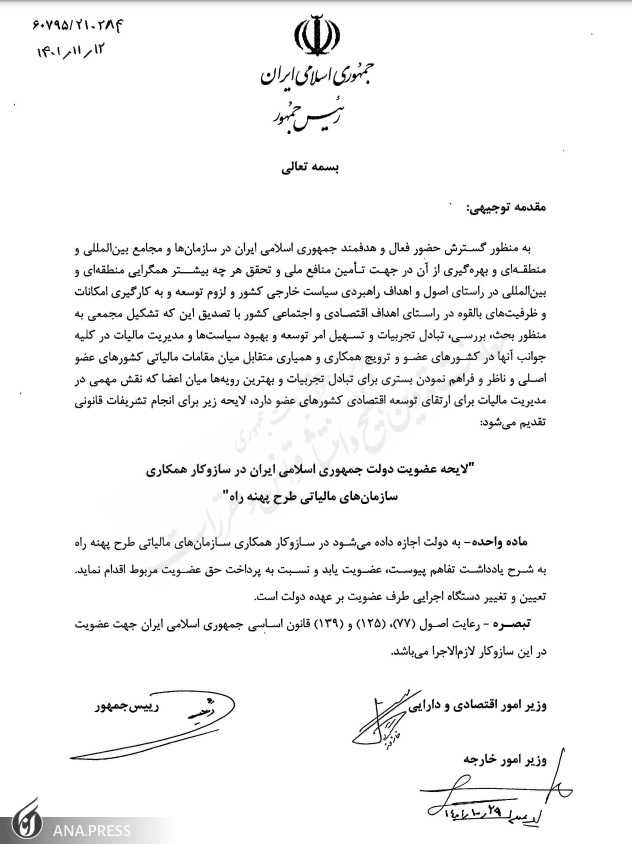 ۶۰۷۹۵/۲۱۰۲۸۴
۱۴۰۱/۱۱/۱۲
جمهوری اسلامی ایران
رئیس جمهور
بسمه تعالی
مقدمه توجیهی:
به منظور گسترش حضور فعال و هدفمند جمهوری اسلامی ایران در سازمان‌ها و مجامع بین‌المللی و
منطقه‌ای و بهره‌گیری از آن در جهت تأمین منافع ملی و تحقق هر چه بیشتر همگرایی منطقه‌ای و
بین‌المللی در راستای اصول و اهداف راهبردی سیاست خارجی کشور و لزوم توسعه و به کارگیری امکانات
و ظرفیت‌های بالقوه در راستای اهداف اقتصادی و اجتماعی کشور با تصدیق این که تشکیل مجمعی به
منظور بحث، بررسی، تبادل تجربیات و تسهیل امر توسعه و بهبود سیاست‌ها و مدیریت مالیات در کلیه
جوانب آنها در کشورهای عضو و ترویج همکاری و همیاری متقابل میان مقامات مالیاتی کشورهای عضو
اصلی و ناظر و فراهم نمودن بستری برای تبادل تجربیات و بهترین رویه‌ها میان اعضا که نقش مهمی در
مدیریت مالیات برای ارتقای توسعه اقتصادی کشورهای عضو دارد، لایحه زیر برای انجام تشریفات قانونی
تقدیم می‌شود:
"لایحه عضویت دولت جمهوری اسلامی ایران در سازوکار همکاری
سازمان‌های مالیاتی طرح پهنه راه"
ماده واحده- به دولت اجازه داده می‌شود در سازوکار همکاری سازمان‌های مالیاتی طرح پهنه راه
به شرح یادداشت تفاهم پیوست، عضویت یابد و نسبت به پرداخت حق عضویت مربوط اقدام نماید.
تعیین و تغییر دستگاه اجرایی طرف عضویت بر عهده دولت است.
تبصره - رعایت اصول (۷۷)، (۱۲۵) و (۱۳۹) قانون اساسی جمهوری اسلامی ایران جهت عضویت
در این سازوکار لازم‌الاجرا می‌باشد.
وزیر امور اقتصادی و دارایی
رییس‌جمهور
وزیر امور خارجه
ANA.PRESS